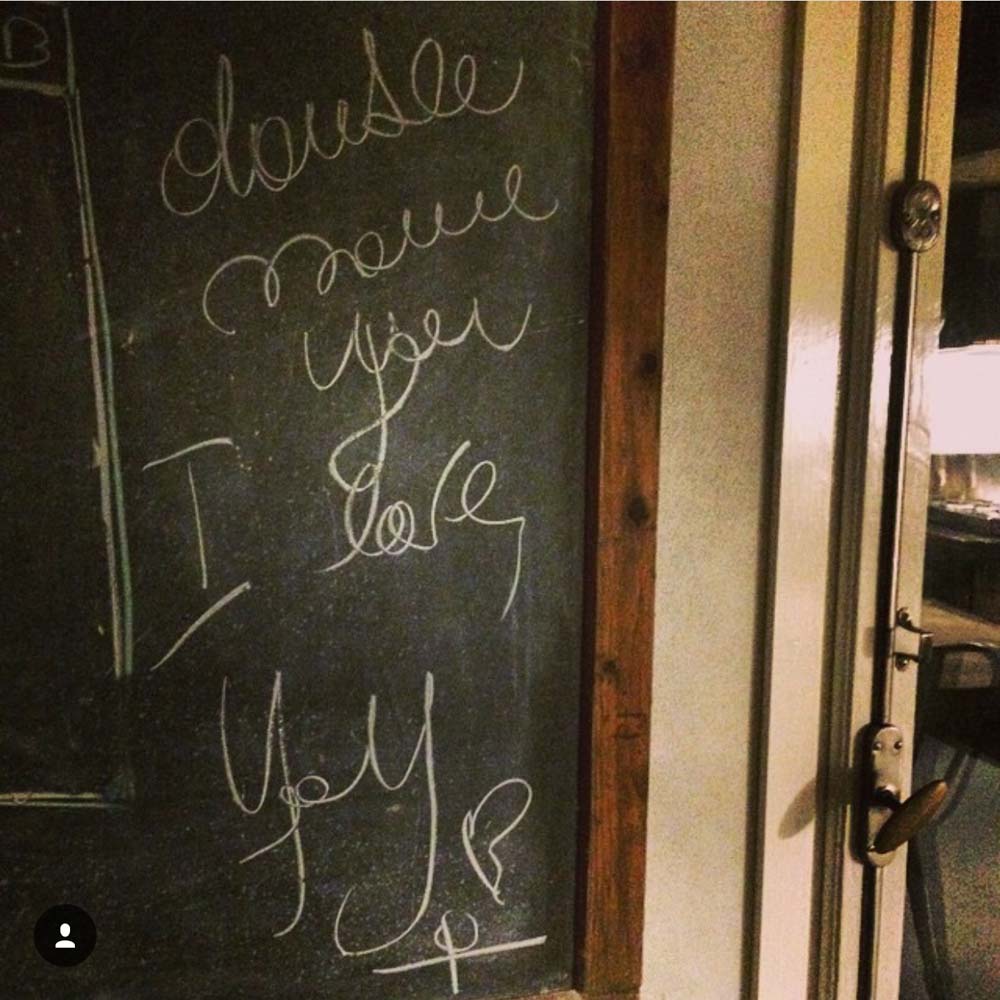 B
double
you
I love
you